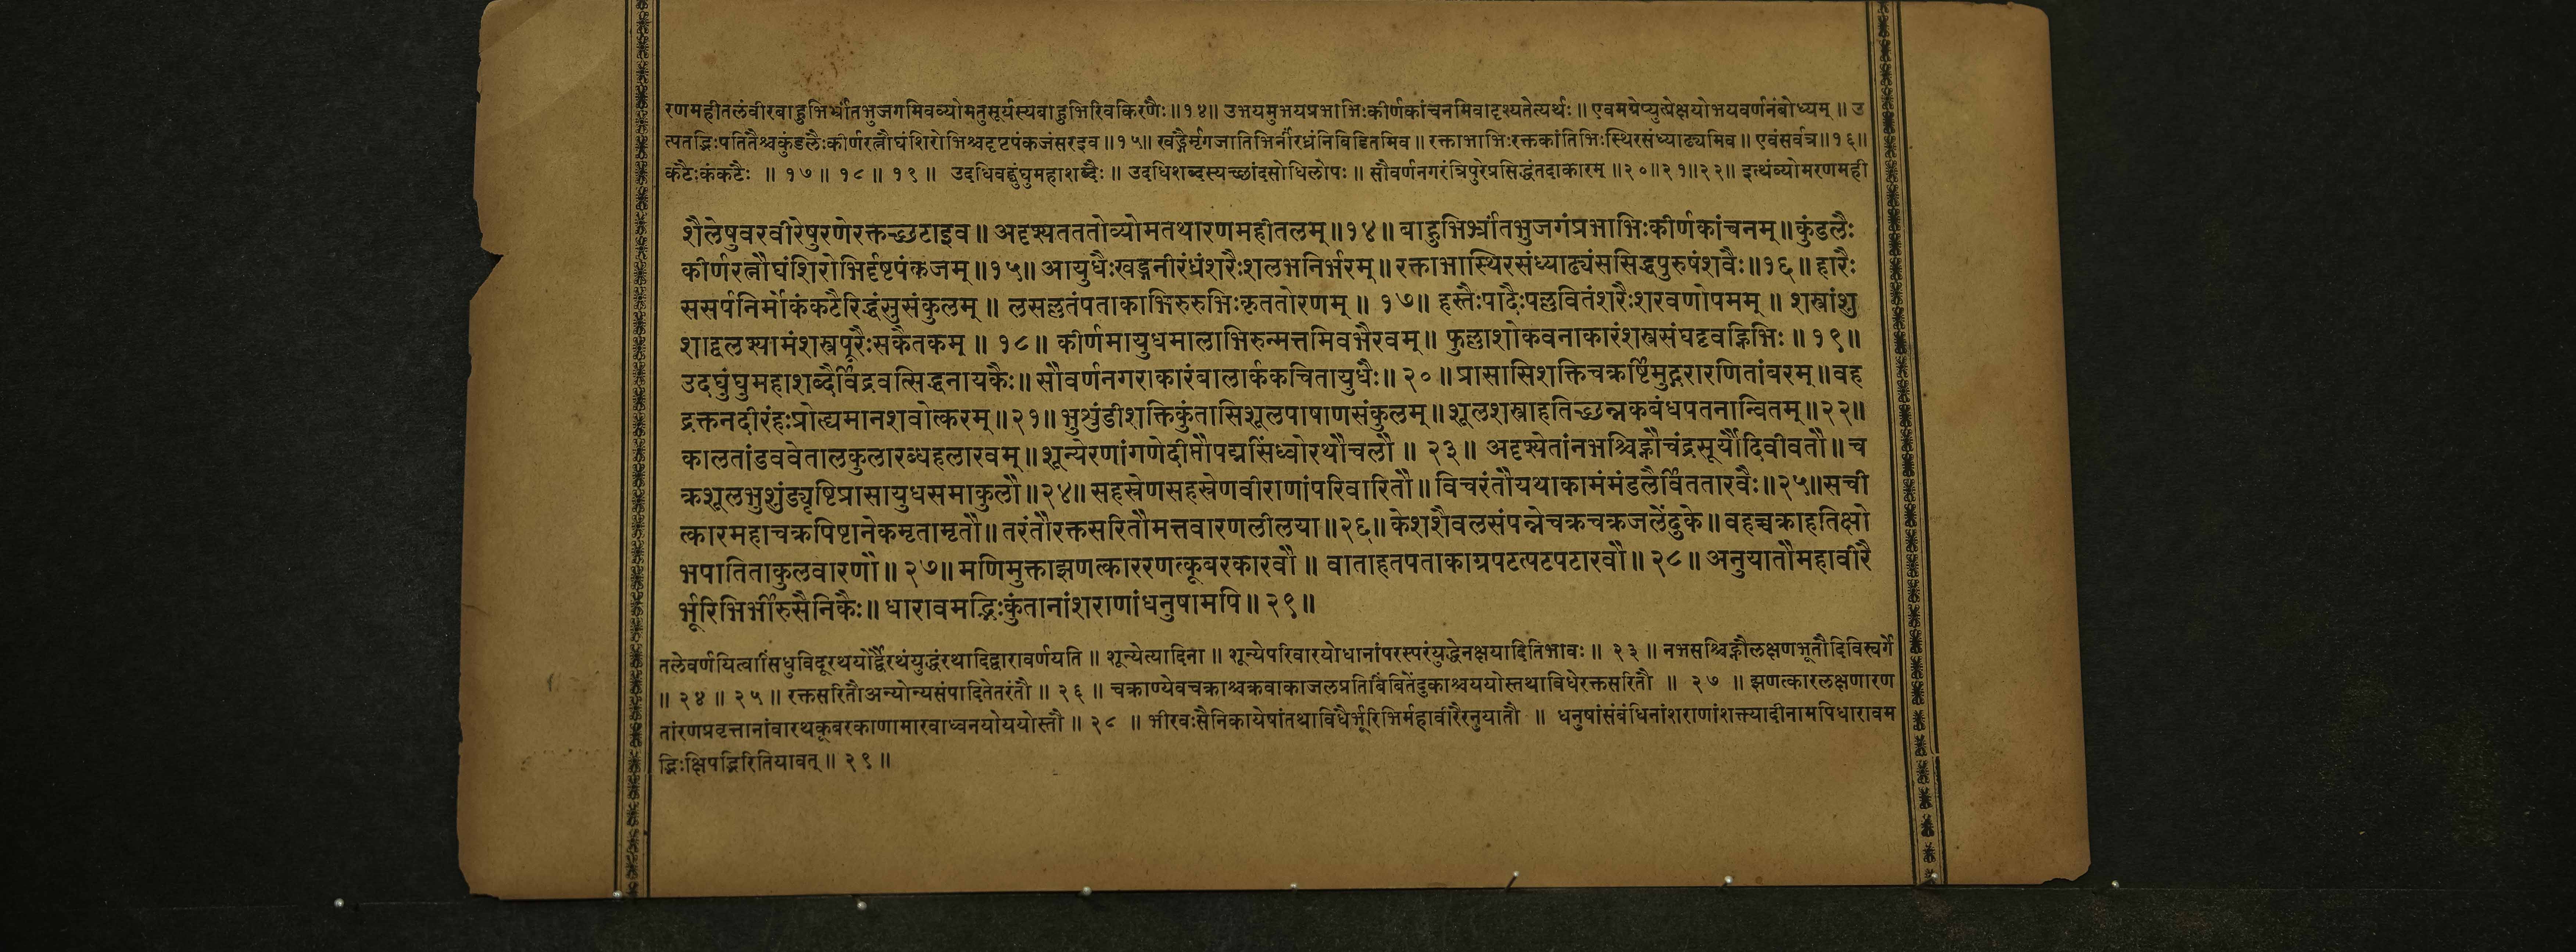 रणमहीतलंवीरबाहुभिर्भ्रांतभुजगमिवव्योमतुसूर्यस्यबाहुभिरिवकिरणैः ॥१४॥ उभयमुभयप्रभाभिःकीर्णकांचनमिवादृश्यतेत्यर्थः ॥ एवमग्रेप्युत्प्रेक्षयोभयवर्णनंबोध्यम् ॥ उ
त्पतद्भिःपतितैश्चकुंडलैःकीर्णरत्नौघंशिरोभिश्चदृष्टपंकजंसरइव ॥१५॥ खड्गैर्मृगजातिभिर्नीरंध्रंनिबिडितमिव ॥ रक्ताभाभिःरक्तकांतिभिःस्थिरसंध्याढ्यमिव ॥ एवंसर्वत्र॥१६॥
कंटैःकंकटैः ॥ १७ ॥ १८ ॥ १९ ॥ उदधिवद्घुंघुमहाशब्दैः ॥ उदधिशब्दस्यच्छांदसोधिलोपः ॥ सौवर्णनगरंत्रिपुरेप्रसिद्धंतदाकारम् ॥२०॥२१॥२२॥ इत्थंव्योमरणमही
शैलेषुवरवीरेषुरणेरक्तच्छटाइव ॥ अदृश्यतततोव्योमतथारणमहीतलम् ॥१४॥ बाहुभिर्भ्रांतभुजगंप्रभाभिःकीर्णकांचनम् ॥ कुंडलैः
कीर्णरत्नौघंशिरोभिर्दृष्टपंकजम् ॥१५॥ आयुधैःखड्गनीरंध्रंशरैःशलभनिर्भरम् ॥ रक्ताभास्थिरसंध्याढ्यंससिद्धपुरुषंशवैः ॥१६॥ हारैः
ससर्पनिर्मोकंकंटैरिद्धंसुसंकुलम् ॥ लसल्लतंपताकाभिरुरुभिःकृततोरणम् ॥ १७॥ हस्तैःपादैःपल्लवितंशरैःशरवणोपमम् ॥ शस्त्रांशु
शाद्वलश्यामंशस्त्रपूरैःसकैतकम् ॥ १८॥ कीर्णमायुधमालाभिरुन्मत्तमिवभैरवम् ॥ फुल्लाशोकवनाकारंशस्त्रसंघट्टवह्निभिः ॥ १९॥
उदघुंघुमहाशब्दैर्विद्रवत्सिद्धनायकैः ॥ सौवर्णनगराकारंबालार्ककचितायुधैः ॥ २० ॥ प्रासासिशक्तिचक्रर्ष्टिमुद्गरारणितांबरम् ॥ वह
द्रक्तनदीरंहःप्रोह्यमानशवोत्करम् ॥२१॥ भुशुंडीशक्तिकुंतासिशूलपाषाणसंकुलम् ॥ शूलशस्त्राहतिच्छन्नकबंधपतनान्वितम् ॥२२॥
कालतांडववेतालकुलारब्धहलारवम् ॥ शून्येरणांगणेदीप्तौपद्मसिंध्वोरथौचलौ ॥ २३ ॥ अदृश्येतांनभश्चिह्नौचंद्रसूर्यौदिवीवतौ ॥ च
क्रशूलभुशुंड्यृष्टिप्रासायुधसमाकुलौ ॥२४॥ सहस्रेणसहस्रेणवीराणांपरिवारितौ ॥ विचरंतौयथाकामंमंडलैर्विततारवैः ॥२५॥ सची
त्कारमहाचक्रपिष्टानेकमृतामृतौ ॥ तरंतौरक्तसरितौमत्तवारणलीलया ॥२६॥ केशशैवलसंपन्नेचक्रचक्रजलेंदुके ॥ वहच्चक्राहतिक्षो
भपातिताकुलवारणौ ॥ २७॥ मणिमुक्ताझणत्काररणत्कूबरकारवौ ॥ वाताहतपताकाग्रपटत्पटपटारवौ ॥ २८ ॥ अनुयातौमहावीरै
र्भूरिभिर्भीरुसैनिकैः ॥ धारावमद्भिःकुंतानांशराणांधनुषामपि ॥ २९॥
तलेवर्णयित्वासिंधुविदूरथयोर्द्वैरथंयुद्धंरथादिद्वारावर्णयति ॥ शून्येत्यादिना ॥ शून्येपरिवारयोधानांपरस्परंयुद्धेनक्षयादितिभावः ॥ २३ ॥ नभसश्चिह्नौलक्षणभूतौदिविस्वर्गे
॥ २४ ॥ २५ ॥ रक्तसरितौअन्योन्यसंपादितेतरंतौ ॥ २६ ॥ चक्राण्येवचक्राश्चक्रवाकाजलप्रतिबिंबितेंदुकाश्चययोस्तथाविधेरक्तसरितौ ॥ २७ ॥ झणत्कारलक्षणारण
तांरणप्रवृत्तानांवारथकूबरकाणामारवाध्वनयोययोस्तौ ॥ २८ ॥ भीरवःसैनिकायेषांतथाविधैर्भूरिभिर्महावीरैरनुयातौ ॥ धनुषांसंबंधिनांशराणांशक्त्यादीनामपिधारावम
द्भिःक्षिपद्भिरितियावत् ॥ २९ ॥